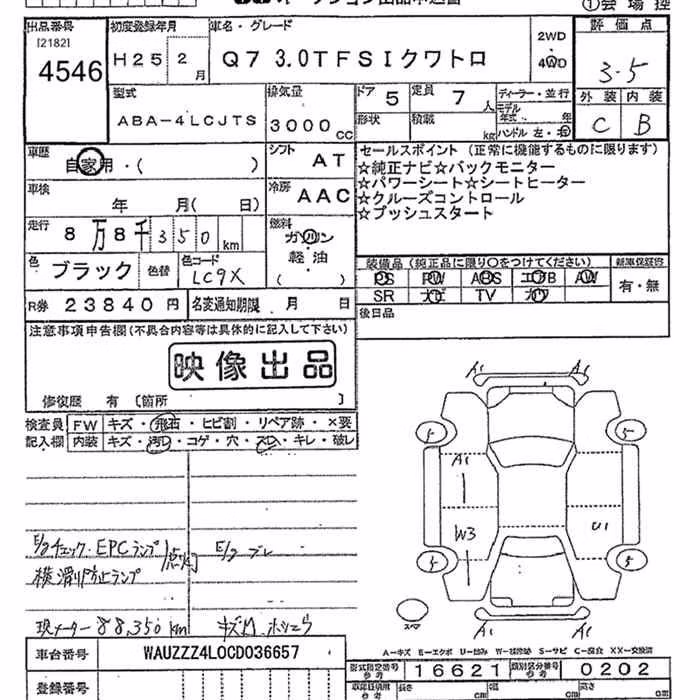 ①会場控
出品番号 初度登録年月 車名・グレード 評価点
[2182]
4546
H25 2月
Q7 3.0TFSIクワトロ
2WD
4WD
3.5
型式 排気量 ドア 5 定員 7人 ディーラー・並行
モデル年式 年
外装 内装
ABA-4LCJTS
3000cc
形状 積載 kg ハンドル 左・右
C B
車歴 シフト セールスポイント (正常に機能するものに限ります)
自家用・( )
AT
☆純正ナビ☆バックモニター
☆パワーシート☆シートヒーター
☆クルーズコントロール
☆プッシュスタート
車検 年 月( 日)
冷房 AAC
走行 8万8千350km
燃料
ガソリン
・
軽油
( )
色 ブラック 色替 色コード LC9X
装備品 (純正品に限り○をつけてください) 新車保証書
PS PW ABS エアB AW
有・無
SR ナビ TV カワ
R券 23840円 名変通知期限 月 日
後日品
注意事項申告欄(不具合内容等は具体的に記入して下さい)
映像出品
修復歴 有 〔箇所 〕
検査員 FW キズ・飛石・ヒビ割・リペア跡・×要
記入欄 内装 キズ・汚れ・コゲ・穴・スレ・キレ・破レ
A1 A1
5 5
A1
W3 U1
5 5
スペア
A1 A1
E/gチェック・EPCランプ 点灯 E/g ブレ
横滑り防止ランプ
現メーター 88,350km
A=キズ E=エクボ U=凹み W=補修跡 S=サビ C=腐食 XX=交換済
車台番号 WAUZZZ4L0CD036657
型式指定番号 参考 16621 類別区分番号 参考 0202
登録番号
長さ cm 幅 cm 高さ cm